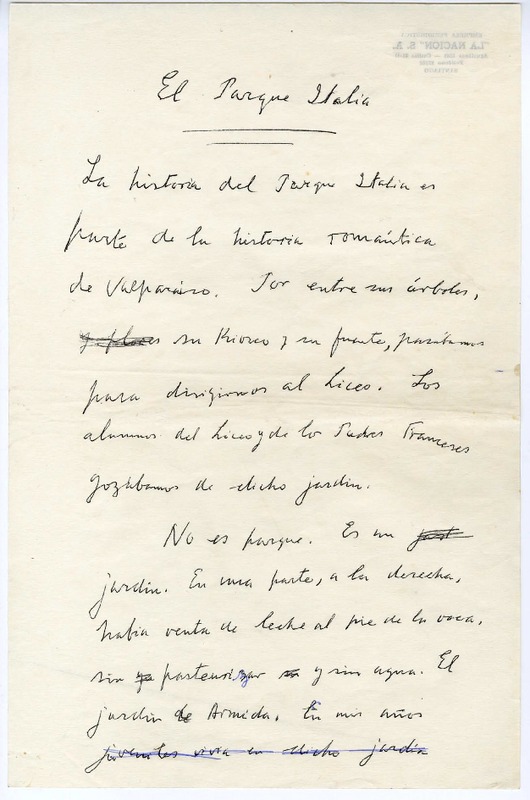 EMPRESA PERIODISTICA
"LA NACION" S. A.
SANTIAGO
El Parque Italia
La historia del Parque Italia es
parte de la historia romántica
de Valparaíso. Por entre sus árboles,
y flores su Kiosco y su fuente, pasábamos
para dirigirnos al Liceo. Los
alumnos del Liceo y de los Padres Franceses
gozábamos de dicho jardín.
No es parque. Es un
jardín. En una parte, a la derecha,
había venta de leche al pie de la vaca,
sin pasteurizar y sin agua. El
jardín de Armida. En mis años
juveniles vivía en dicho jardín